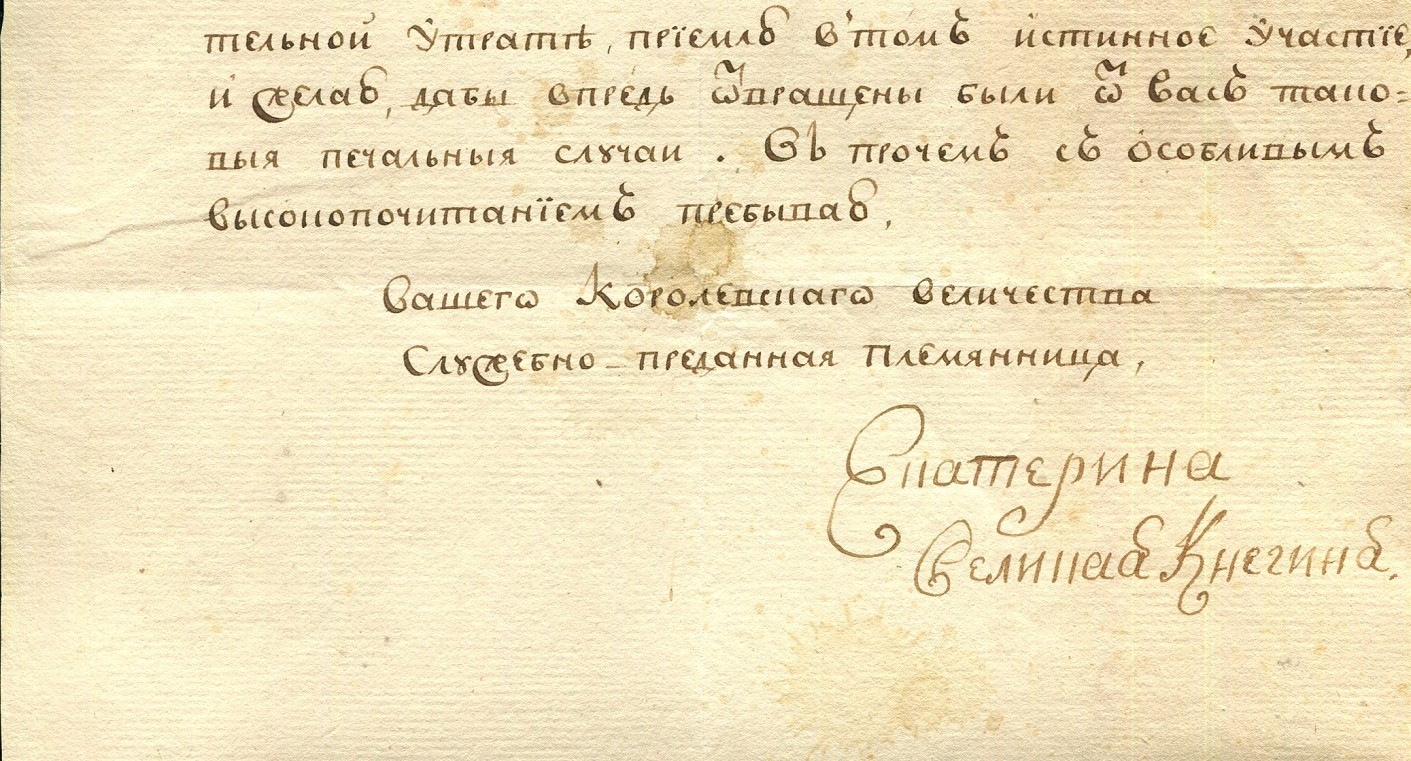 тельной ѹтратѣ, прїемля в'томъ истинное ѹчастїе,
и желая, дабы впредь ѿвращены были ѿ васъ тако=
выя печальныя слꙋчаи. Въ прочемъ съ особливымъ
высокопочитанїемъ пребывая,
Вашегѡ Королевскагѡ величества
Слꙋжебно-преданная племянница,
Екатерина
Великая Кнегиня.